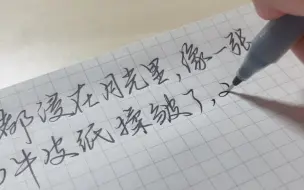 都浸在月光里,像一张
牛皮纸揉皱了,